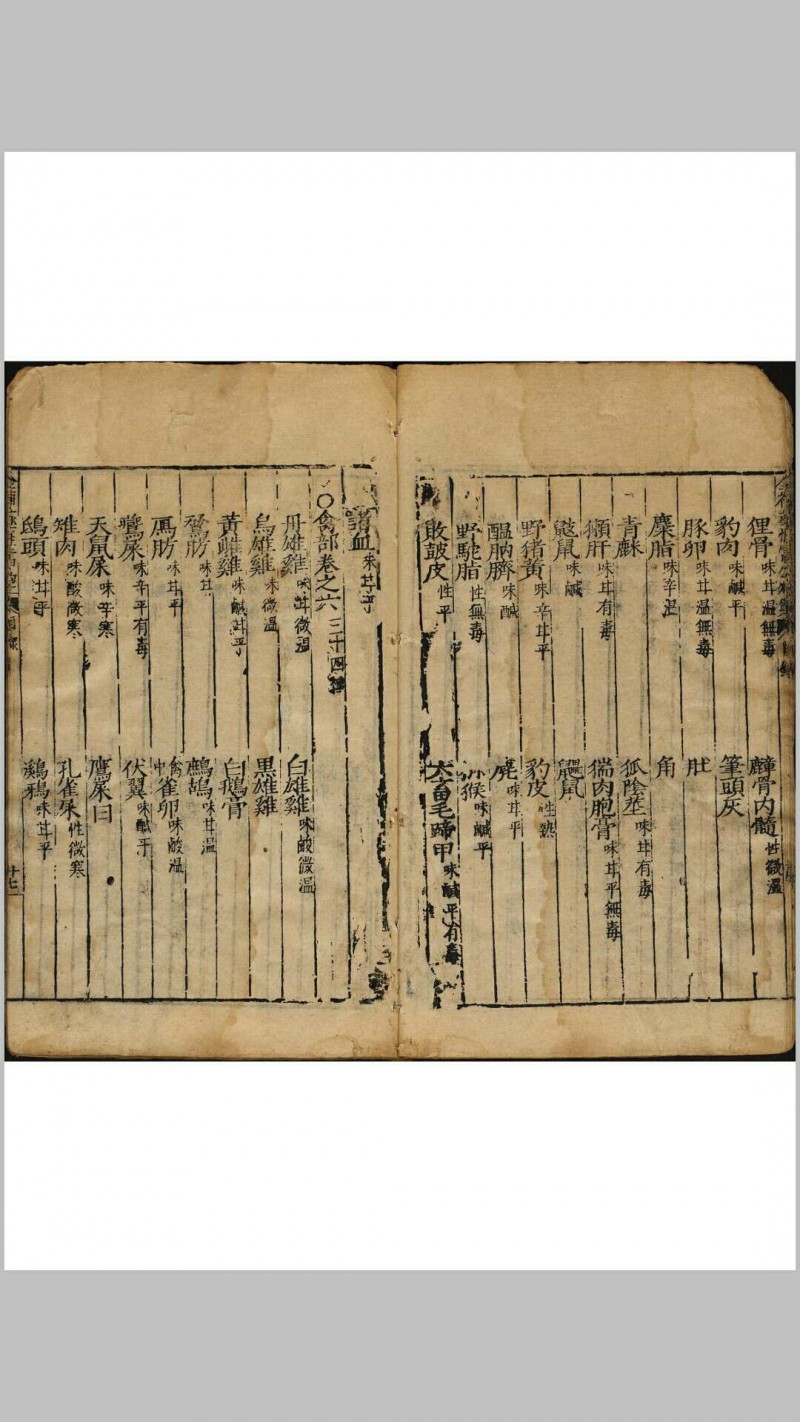 狸骨 味甘溫無毒 麞骨內髓 性微溫
豹肉 味鹹平 筆頭灰
豚卵 味甘溫無毒 肚
麋脂 味辛溫 角
青麻 狐陰莖 味甘有毒
獺肝 味甘有毒 猯肉胞膏 味甘平無毒
鼹鼠 味鹹 鼺鼠
野猪黃 味辛甘平 豹皮 性熱
膃肭臍 味鹹 麂 味甘平
野駝脂 性無毒 猴 味鹹平
敗鼓皮 性平 六畜毛蹄甲 味鹹平有毒
諸血 味甘平
〇禽部卷之六 三十四種
丹雄雞 味甘微溫 白雄雞 味酸微溫
烏雄雞 味微溫 黑雌雞
黃雌雞 味鹹甘平 白鵝膏
鶩肪 味甘 鷓鴣 味甘溫
鴈肪 味甘平 雀卵 味酸溫
鷰屎 味辛平有毒 伏翼 味鹹平
天鼠屎 味辛寒 鷹屎白
雉肉 味酸微寒 孔雀屎 性微寒
鴟頭 味甘平 鸂鶒 味甘平
十七